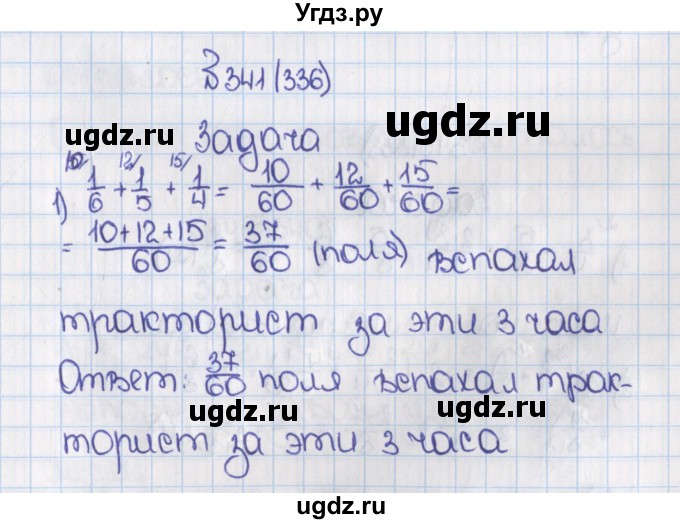 Угдз.ру
В 341 (336)
ugdz.ru
ugdz.ru
Задача
10/ 12/ 15/
1) 1/6 + 1/5 + 1/4 = 10/60 + 12/60 + 15/60 =
= (10+12+15)/60 = 37/60 (поля) вспахал
тракторист за эти 3 часа
Ответ: 37/60 поля вспахал трак-
ugdz.ru
ugdz.ru
торист за эти 3 часа
ugdz.ru